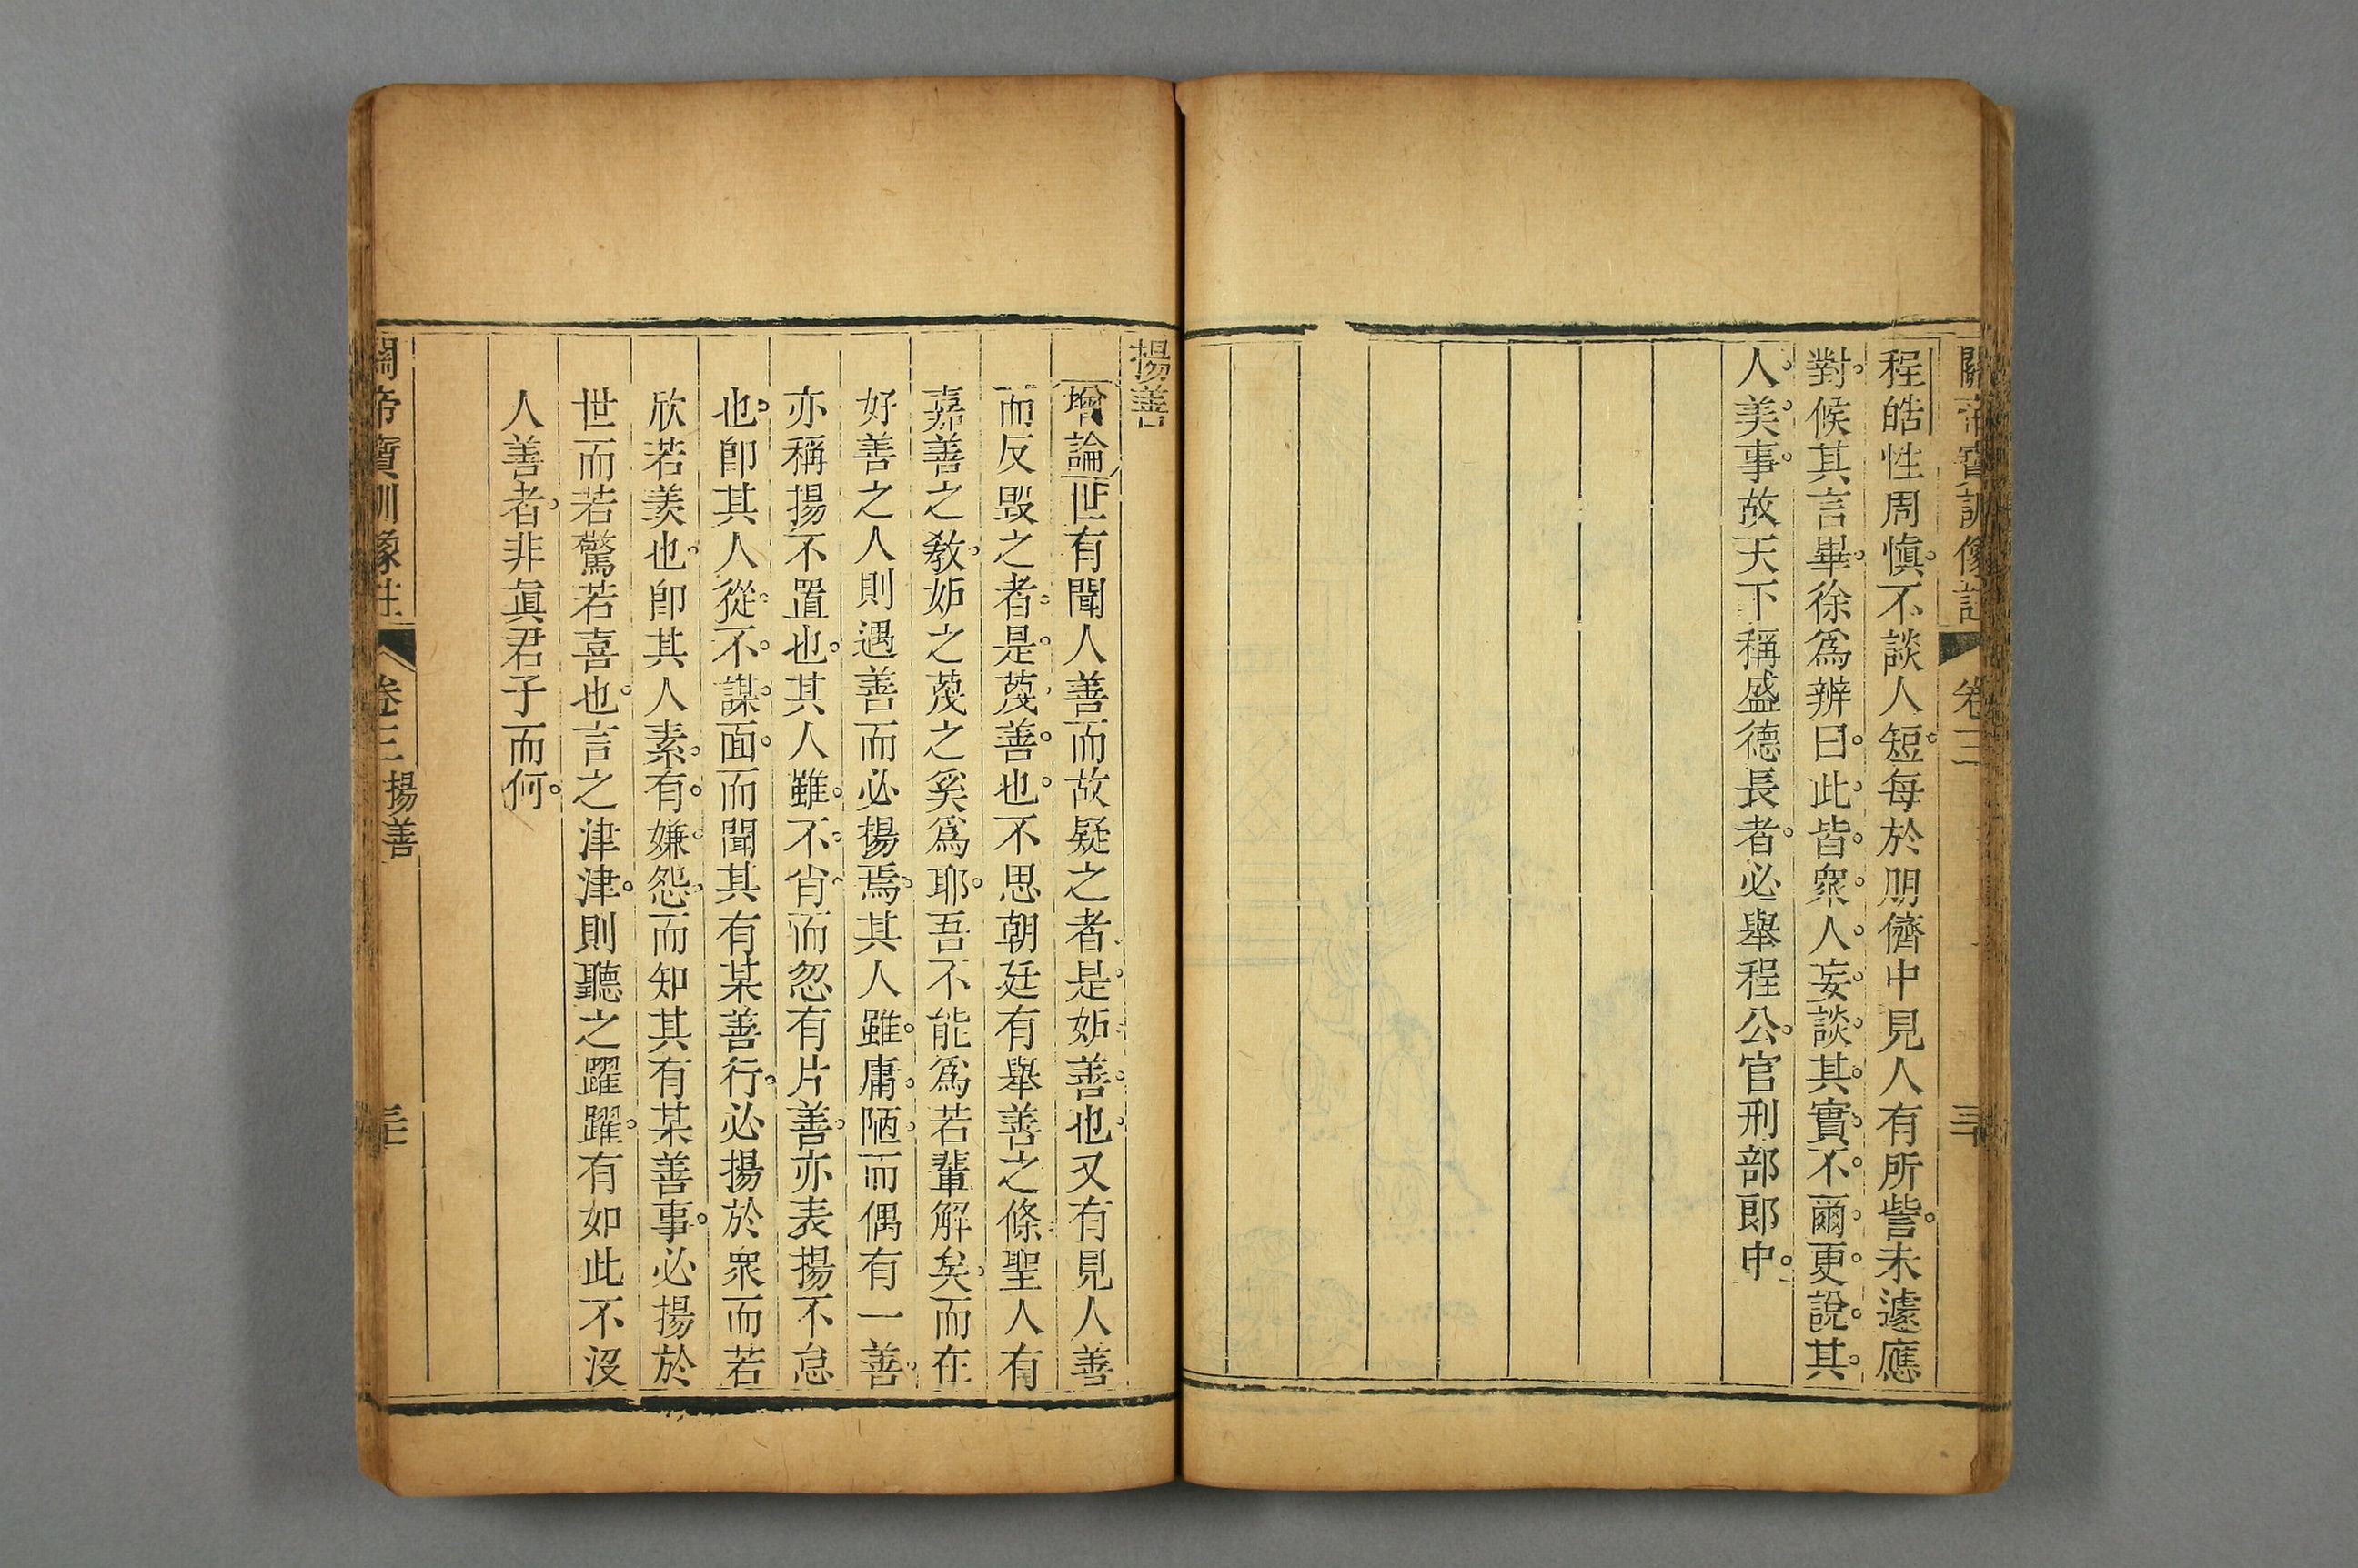 關帝寶訓像註 卷三 三十
程皓性周慎。不談人短。每於朋儕中見人有所訾。未遽應
對。候其言畢。徐爲辨曰。此。皆。衆。人。妄。談。其。實。不。爾。更。說。其。
人。美。事。故天下稱盛德長者。必舉程公。官刑部郎中。
揚善
增論世有聞人善而故疑之者。是。妬。善。也。又有見人善
而反毀之者。是。蔑。善。也。不思朝廷有舉善之條。聖人有
嘉善之教。妬之蔑之奚爲耶。吾不能爲若輩解矣。而在
好善之人則遇善而必揚焉。其人雖。庸。陋。而偶有一善。
亦稱揚不置也。其人雖。不。肖。而忽有片善。亦表揚不怠
也。卽其人從。不。謀。面。而聞其有某善行。必揚於衆而若
欣若羨也。卽其人素。有。嫌。怨。而知其有某善事。必揚於
世而若驚若喜也。言之津津。則聽之躍躍。有如此不沒
人善者。非眞君子而何。
關帝寶訓像註 卷三 揚善